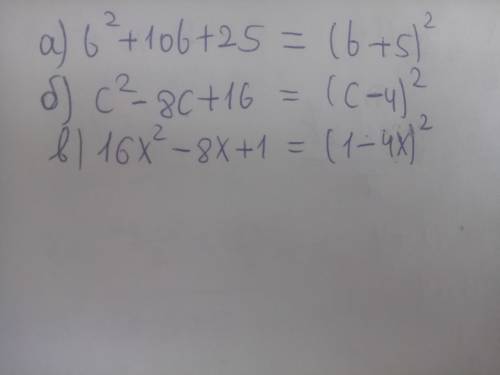 а) b² + 10b + 25 = (b + 5)²
б) c² - 8c + 16 = (c - 4)²
в) 16x² - 8x + 1 = (1 - 4x)²